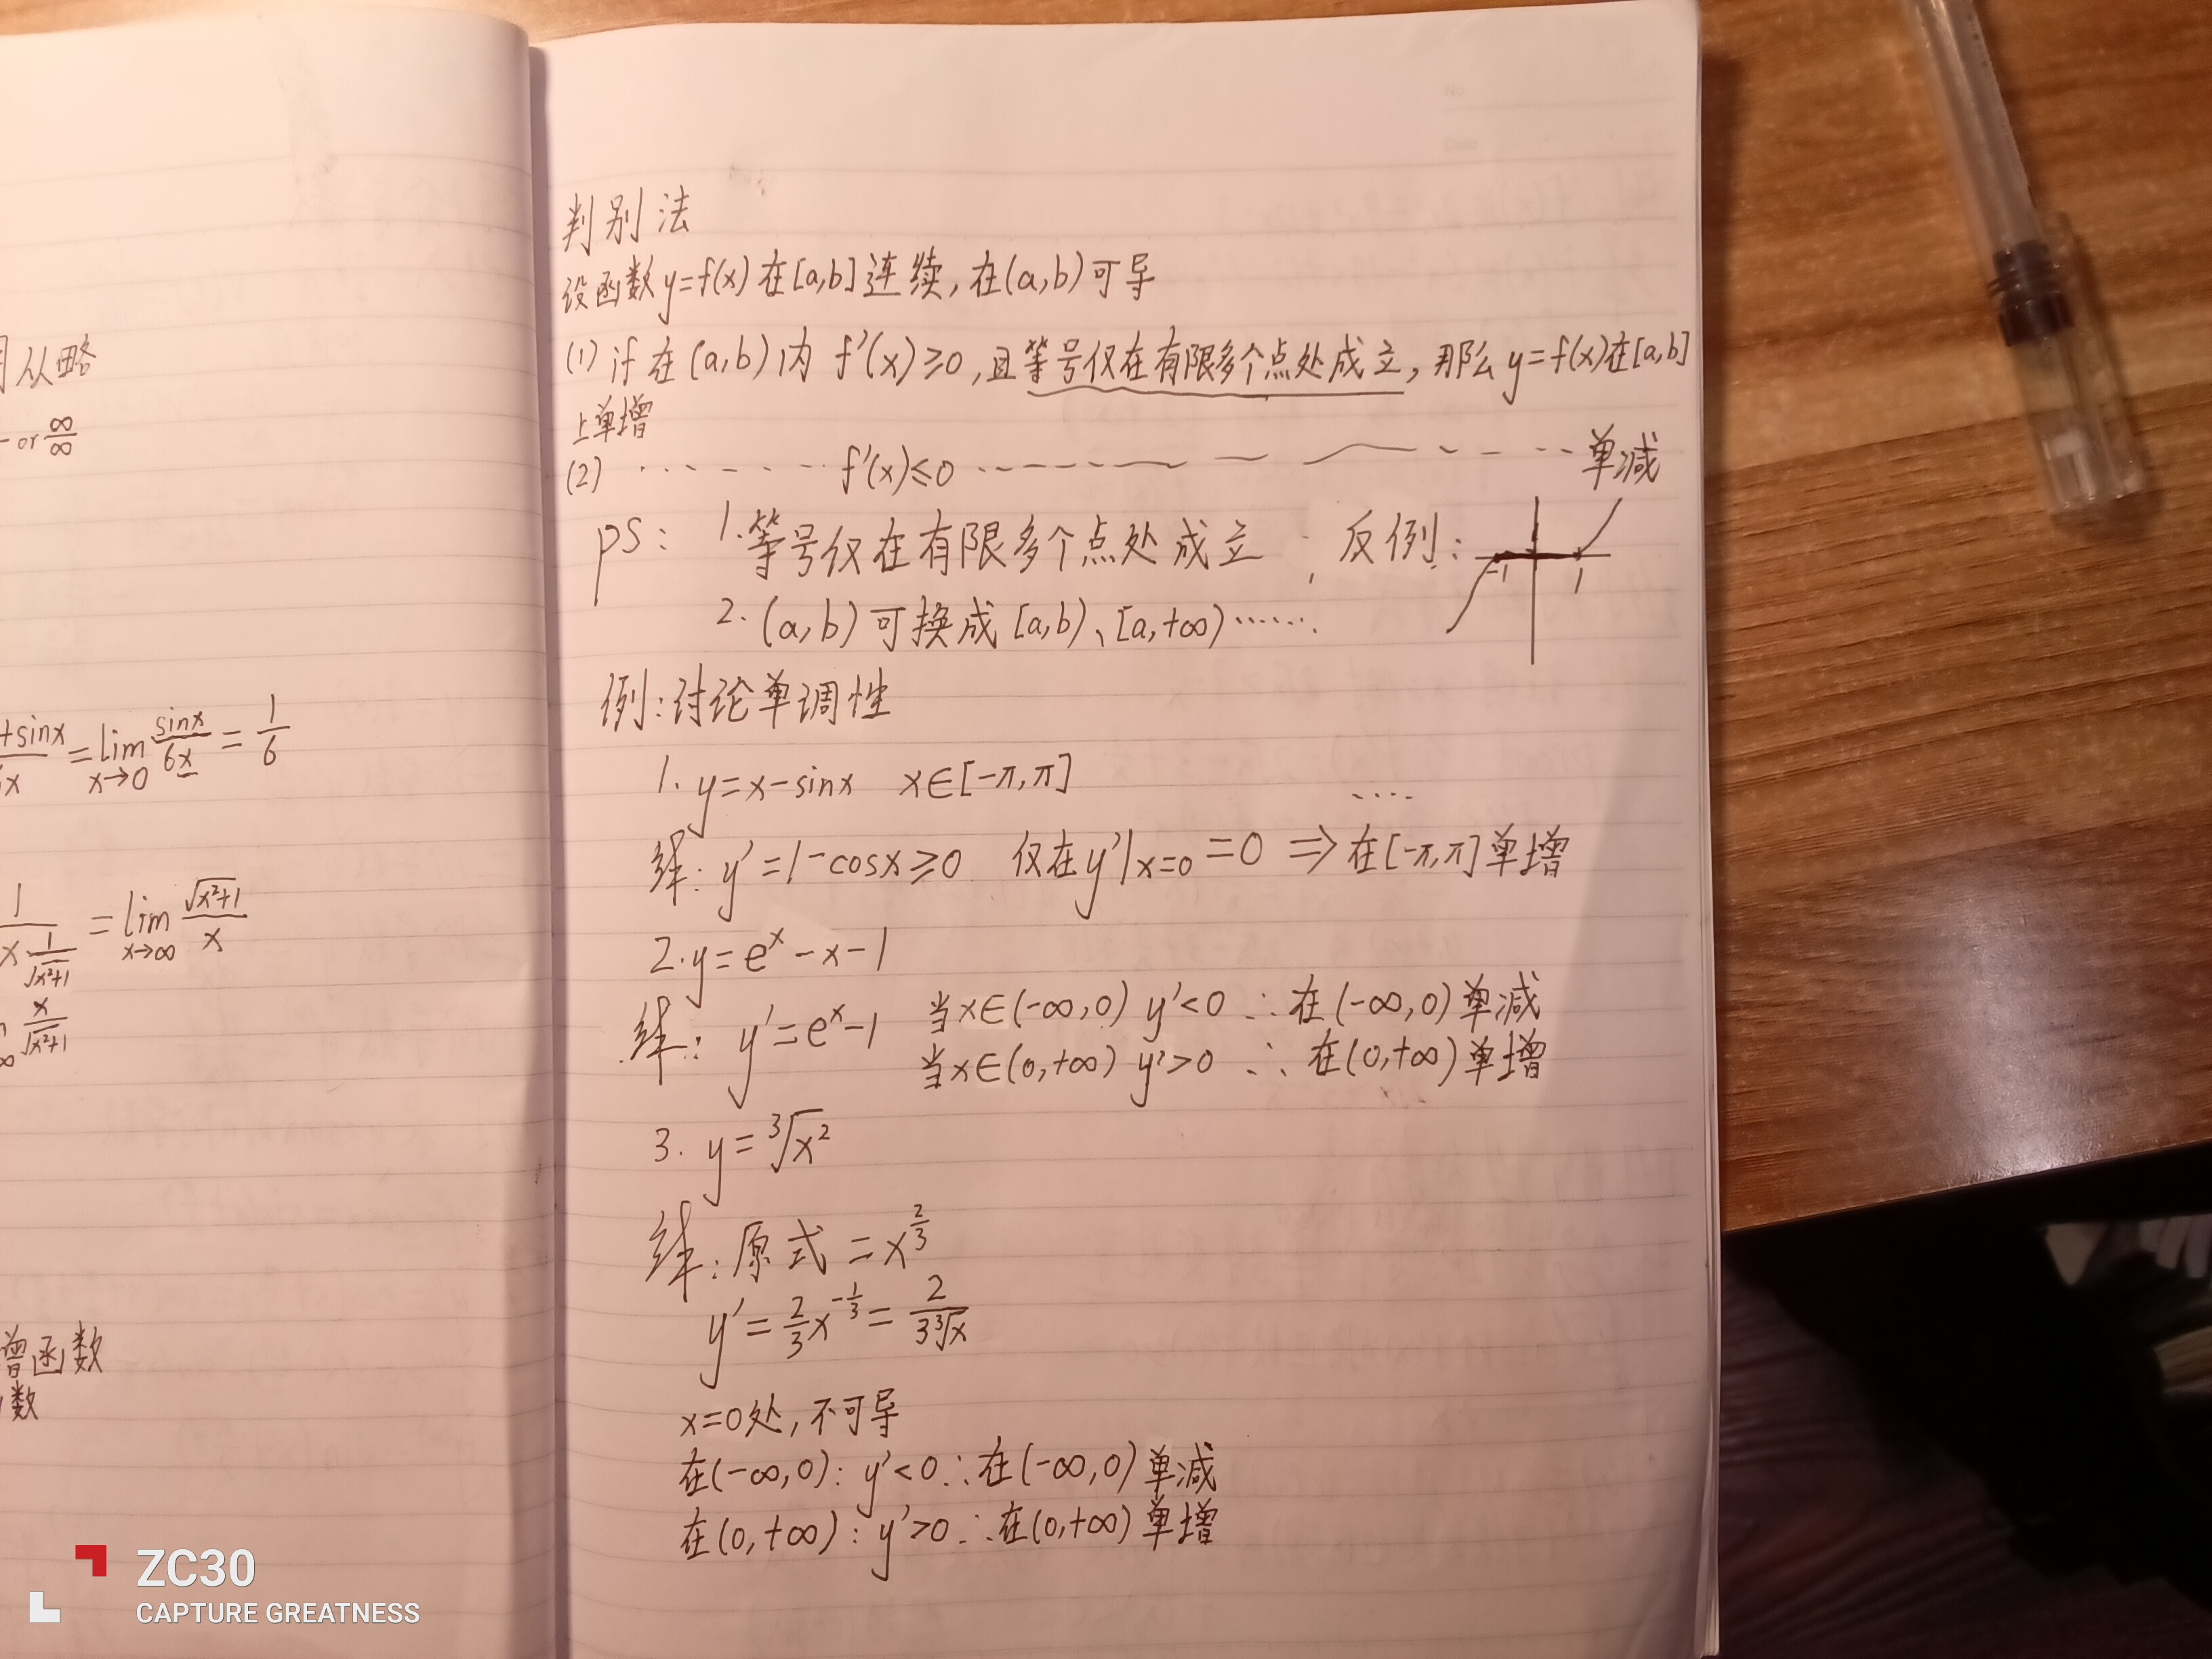 从略
or ∞/∞
+sinx/x = lim x→0 sinx/6x = 1/6
1/x·1/√x²+1 = lim x→∞ √x²+1/x
x/√x²+1
增函数
数
判别法
设函数y=f(x)在[a,b]连续,在(a,b)可导
(1) if 在(a,b)内 f'(x)≥0,且等号仅在有限多个点处成立,那么y=f(x)在[a,b]
上单增
(2) ········f'(x)≤0 ------ — --- 单减
ps: 1.等号仅在有限多个点处成立 ; 反例:
-1 1
2.(a,b)可换成[a,b)、[a,+∞)······
例:讨论单调性
1. y=x-sinx x∈[-π,π]
····
: y'=1-cosx≥0 仅在y'|x=0 =0 ⇒在[-π,π]单增
2.y=eˣ-x-1
: y'=eˣ-1 当x∈(-∞,0) y'<0 ∴在(-∞,0)单减
当x∈(0,+∞) y'>0 ∴在(0,+∞)单增
3. y=³√x²
:原式=x^(2/3)
y'=2/3x^(-1/3)=2/3³√x
x=0处,不可导
在(-∞,0): y'<0∴在(-∞,0)单减
在(0,+∞): y'>0∴在(0,+∞)单增
ZC30
CAPTURE GREATNESS